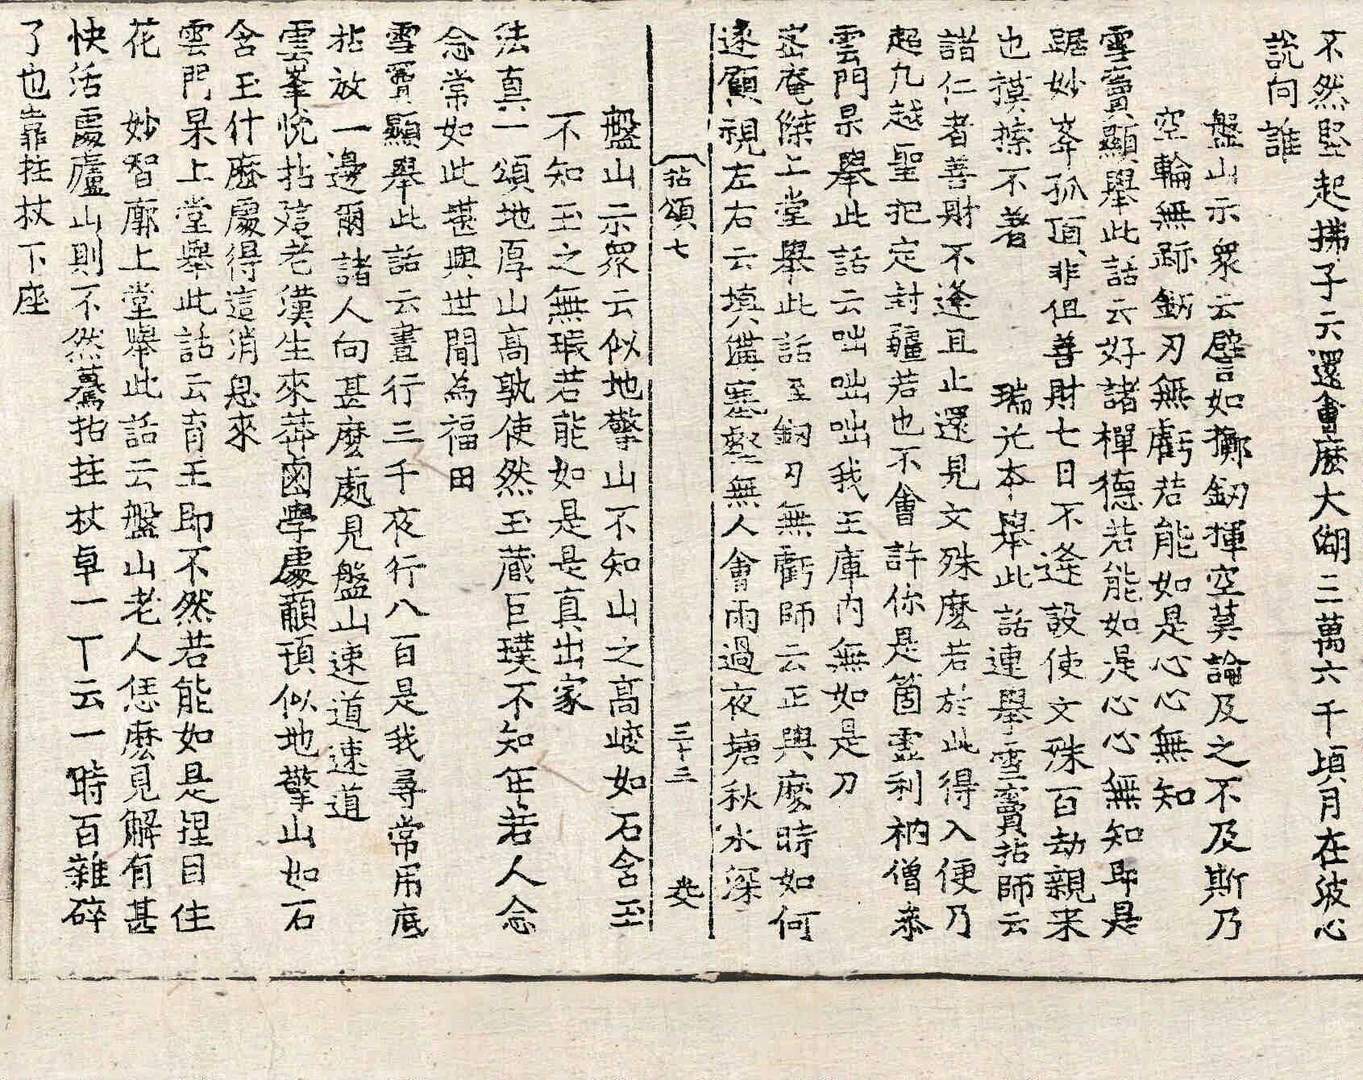 不然竪起拂子云還會麽大湖三萬六千頃月在波心
說向誰
盤山示衆云譬如擲釰揮空莫論及之不及斯乃
空輪無跡釰刃無虧若能如是心心無知
雪竇顯擧此話云好諸禪德若能如是心心無知即是
踞妙峯孤頂非但善財七日不逢設使文殊百劫親来
也摸捺不着 瑞光本擧此話連擧雪竇拈師云
諸仁者善財不逢且止還見文殊麽若於此得入便乃
超凡越聖把定封疆若也不會許你是箇靈利衲僧叅
雲門杲擧此話云咄咄咄我王庫內無如是刀
密庵傑上堂擧此話至釰刃無虧師云正與麽時如何
逐顧視左右云塡溝塞壑無人會雨過夜塘秋水深
拈頌七 三十三
盤山示衆云似地擎山不知山之高峻如石含玉
不知玉之無瑕若能如是是真出家
法真一頌地厚山高孰使然玉蔵巨璞不知年若人念
念常如此堪與世間為福田
雪竇顯擧此話云晝行三千夜行八百是我尋常用底
拈放一邊爾諸人向甚麽處見盤山速道速道
雲峯悅拈這老漢生來莽鹵學處顢頇似地擎山如石
含玉什麽處得這消息來
雲門杲上堂擧此話云育王即不然若能如是捏目生
花 妙智廓上堂擧此話云盤山老人恁麽見解有甚
快活處廬山則不然驀拈拄杖卓一下云一時百雜碎
了也靠拄杖下座